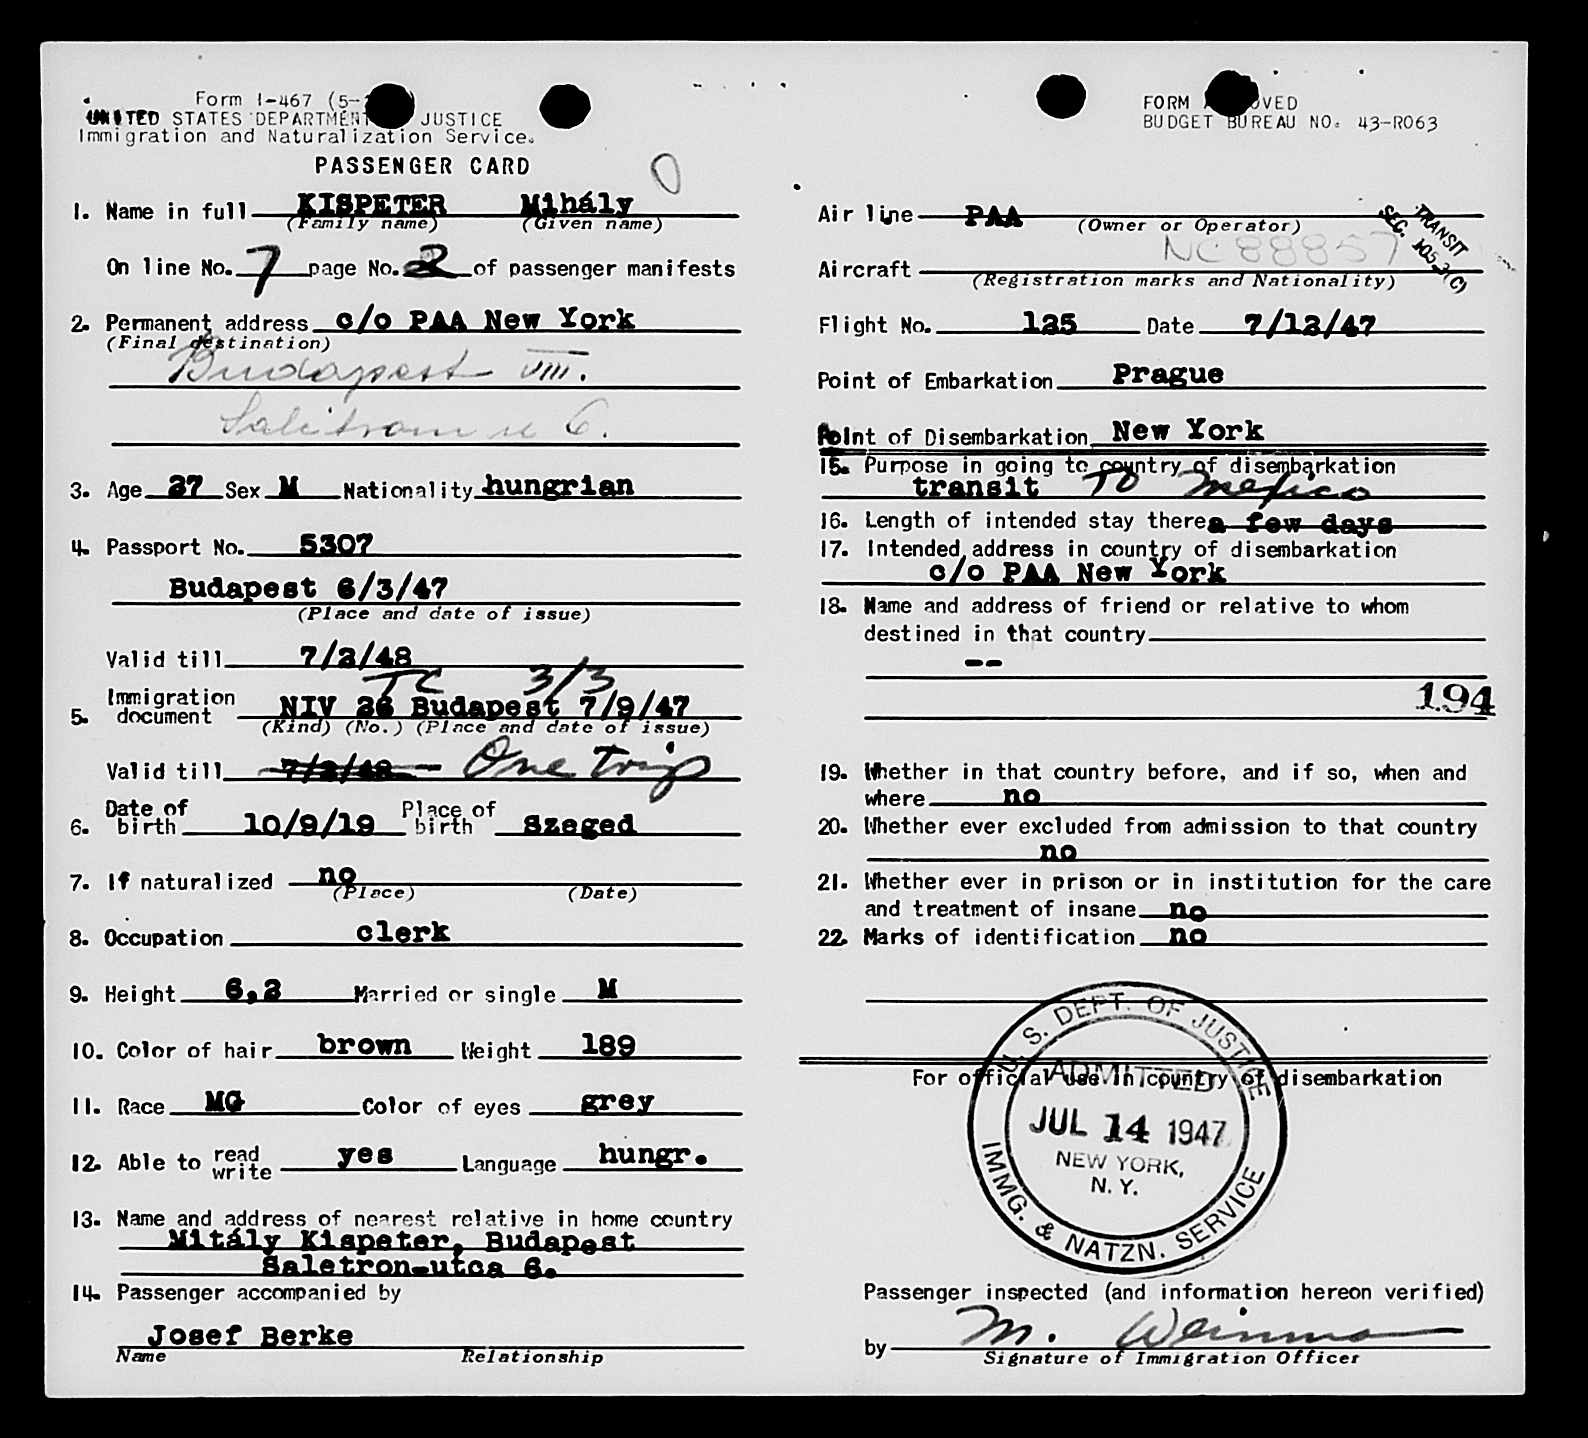 Form I-467 (5-
UNITED STATES DEPARTMENT JUSTICE
Immigration and Naturalization Service.
PASSENGER CARD
0
1. Name in full KISPETER Mihály
(Family name) (Given name)
On line No. 7 page No. 2 of passenger manifests
2. Permanent address c/o PAA New York
(Final destination)
Budapest VIII.
Salétrom u 6.
3. Age 27 Sex M Nationality hungrian
4. Passport No. 5307
Budapest 6/3/47
(Place and date of issue)
Valid till 7/2/48
TC 3/3
5. Immigration document NIV 26 Budapest 7/9/47
(Kind) (No.) (Place and date of issue)
Valid till 7/2/48 One Trip
6. Date of birth 10/9/19 Place of birth Szeged
7. If naturalized no
(Place) (Date)
8. Occupation clerk
9. Height 6,2 Married or single M
10. Color of hair brown Weight 189
11. Race MG Color of eyes grey
12. Able to read write yes Language hungr.
13. Name and address of nearest relative in home country
Mitály Kispeter, Budapest
Saletron-utca 6.
14. Passenger accompanied by
Josef Berke
Name Relationship
FORM VED
BUDGET BUREAU NO. 43-R063
Air line PAA
(Owner or Operator)
TRANSIT
SEC. 105 3(C)
Aircraft NC88857
(Registration marks and Nationality)
Flight No. 125 Date 7/12/47
Point of Embarkation Prague
Point of Disembarkation New York
15. Purpose in going to country of disembarkation
transit TO Mexico
16. Length of intended stay there a few days
17. Intended address in country of disembarkation
c/o PAA New York
18. Name and address of friend or relative to whom
destined in that country
--
194
19. Whether in that country before, and if so, when and
where no
20. Whether ever excluded from admission to that country
no
21. Whether ever in prison or in institution for the care
and treatment of insane no
22. Marks of identification no
For official use in country of disembarkation
U. S. DEPT. OF JUSTICE
ADMITTED
JUL 14 1947
NEW YORK,
N. Y.
IMMG. & NATZN. SERVICE
Passenger inspected (and information hereon verified)
by M. Weinman
Signature of Immigration Officer